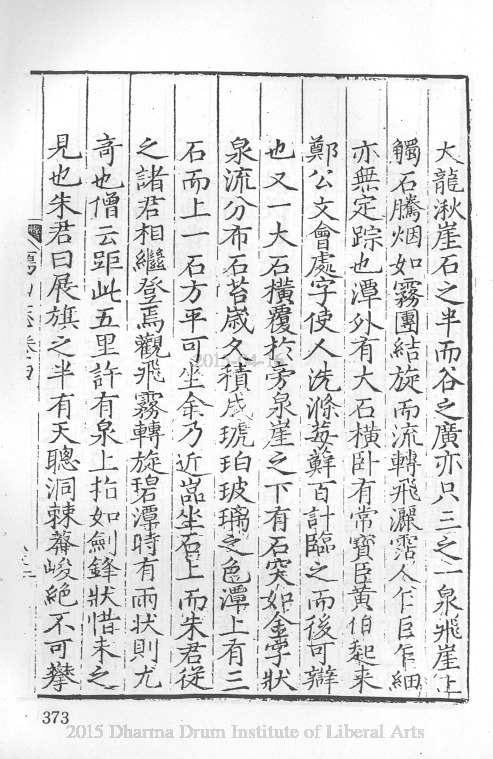 大龍湫崖石之半而谷之廣亦只三之一泉飛崖上
觸石騰烟如霧團結旋而流轉飛灑霑人乍巨乍細
亦無定踪也潭外有大石橫卧有常寳臣黄伯起來
鄭公文會處字使人洗滌莓蘚百計臨之而後可辯
也又一大石橫覆於旁泉崖之下有石突如釡學狀
泉流分布石苔嵗久積成琥珀玻璃之色潭上有三
石而上一石方平可坐余乃近嵓坐石上而朱君從
之諸君相繼登焉觀飛霧轉旋碧潭時有雨狀則尤
竒也僧云距此五里許有泉上指如劍鋒狀惜未之
見也朱君曰展旗之半有天聰洞棘蓁峻絕不可攀
鴈山志卷四
373
2015 Dharma Drum Institute of Liberal Arts